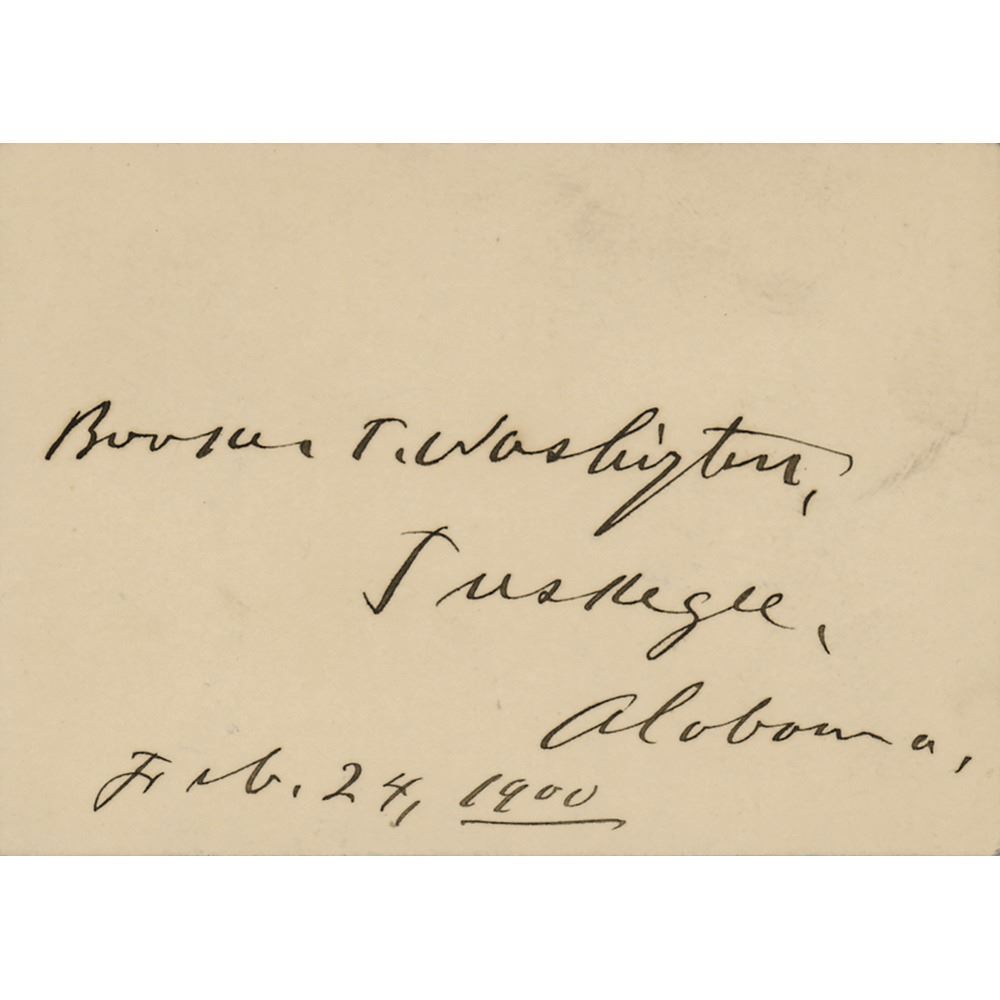 Booker T. Washington,
Tuskegee,
Alabama,
Feb. 24, 1900